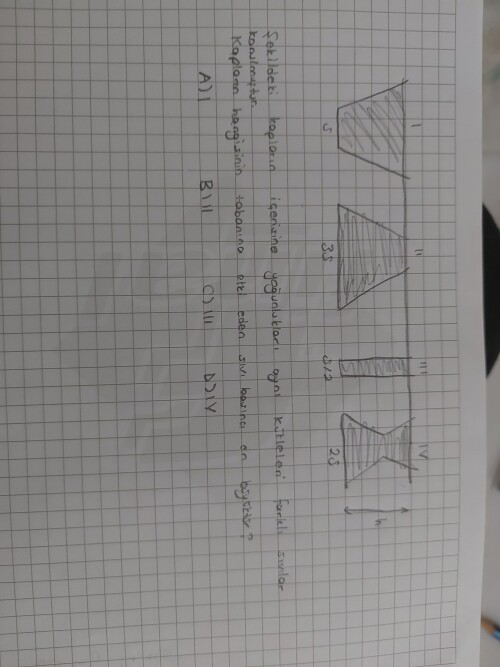 I II III IV
h
S 3S S/2 2S
Şekildeki kapların içerisine yoğunlukları aynı kütleleri farklı sıvılar
konulmuştur.
Kapların hangisinin tabanına etki eden sıvı basıncı en büyüktür?
A) I B) II C) III D) IV